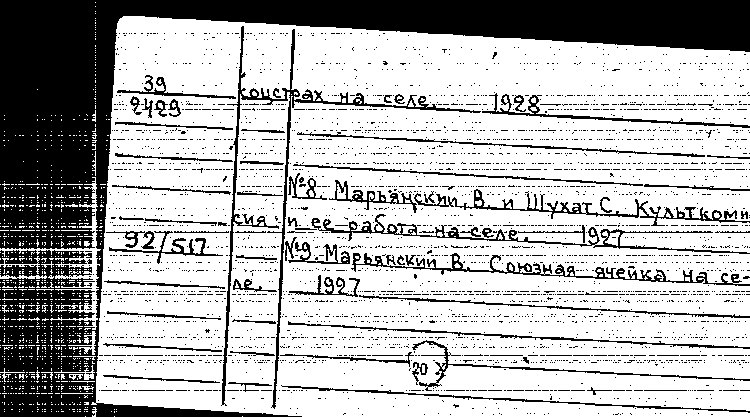 39
2429
соцстрах на селе. 1928.
№8. Марьянский, В. и Шухат, С. Культкомис
сия и ее работа на селе. 1927
92/517
№9. Марьянский, В. Союзная ячейка на се-
ле. 1927
20 X